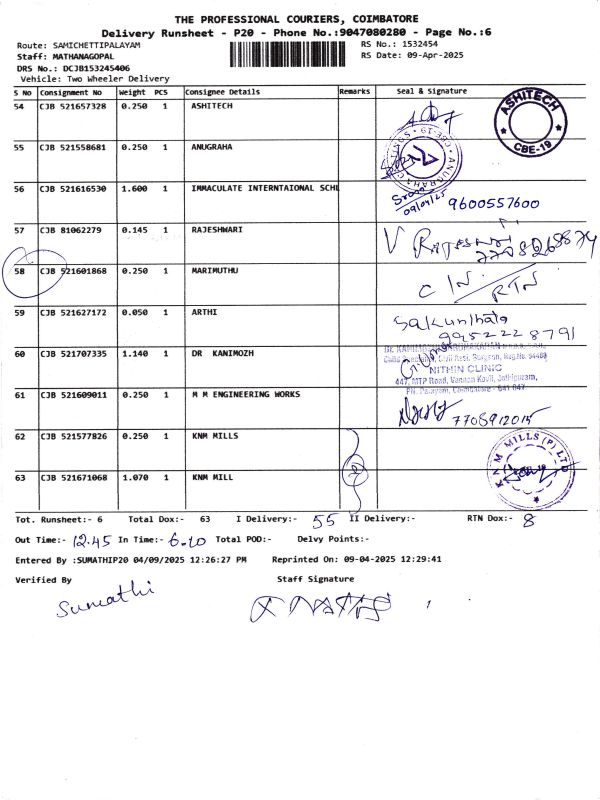 THE PROFESSIONAL COURIERS, COIMBATORE
Delivery Runsheet - P20 - Phone No.:9047080280 - Page No.:6
Route: SAMICHETTIPALAYAM RS No.: 1532454
Staff: MATHANAGOPAL RS Date: 09-Apr-2025
DRS No.: DCJB153245406
Vehicle: Two Wheeler Delivery
S No Consignment No Weight PCS Consignee Details Remarks Seal & Signature
54 CJB 521657328 0.250 1 ASHITECH ASHITECH CBE-19
55 CJB 521558681 0.250 1 ANUGRAHA
56 CJB 521616530 1.600 1 IMMACULATE INTERNTAIONAL SCHL 09/04/25 9600557600
57 CJB 81062279 0.145 1 RAJESHWARI V
58 CJB 521601868 0.250 1 MARIMUTHU C/N. RTN
59 CJB 521627172 0.050 1 ARTHI Sakunthala
9952228791
60 CJB 521707335 1.140 1 DR KANIMOZH
NITHIN CLINIC
447, MTP Road, Vennan Kovil, Jothipuram,
PN. Palayam, Coimbatore - 641 047
61 CJB 521609011 0.250 1 M M ENGINEERING WORKS 7708912015
62 CJB 521577826 0.250 1 KNM MILLS K.N.M MILLS (P) LTD
63 CJB 521671068 1.070 1 KNM MILL
Tot. Runsheet:- 6 Total Dox:- 63 I Delivery:- 55 II Delivery:- RTN Dox:- 8
Out Time:- 12.45 In Time:- 6.10 Total POD:- Delvy Points:-
Entered By :SUMATHIP20 04/09/2025 12:26:27 PM Reprinted On: 09-04-2025 12:29:41
Verified By Staff Signature
Sumathi